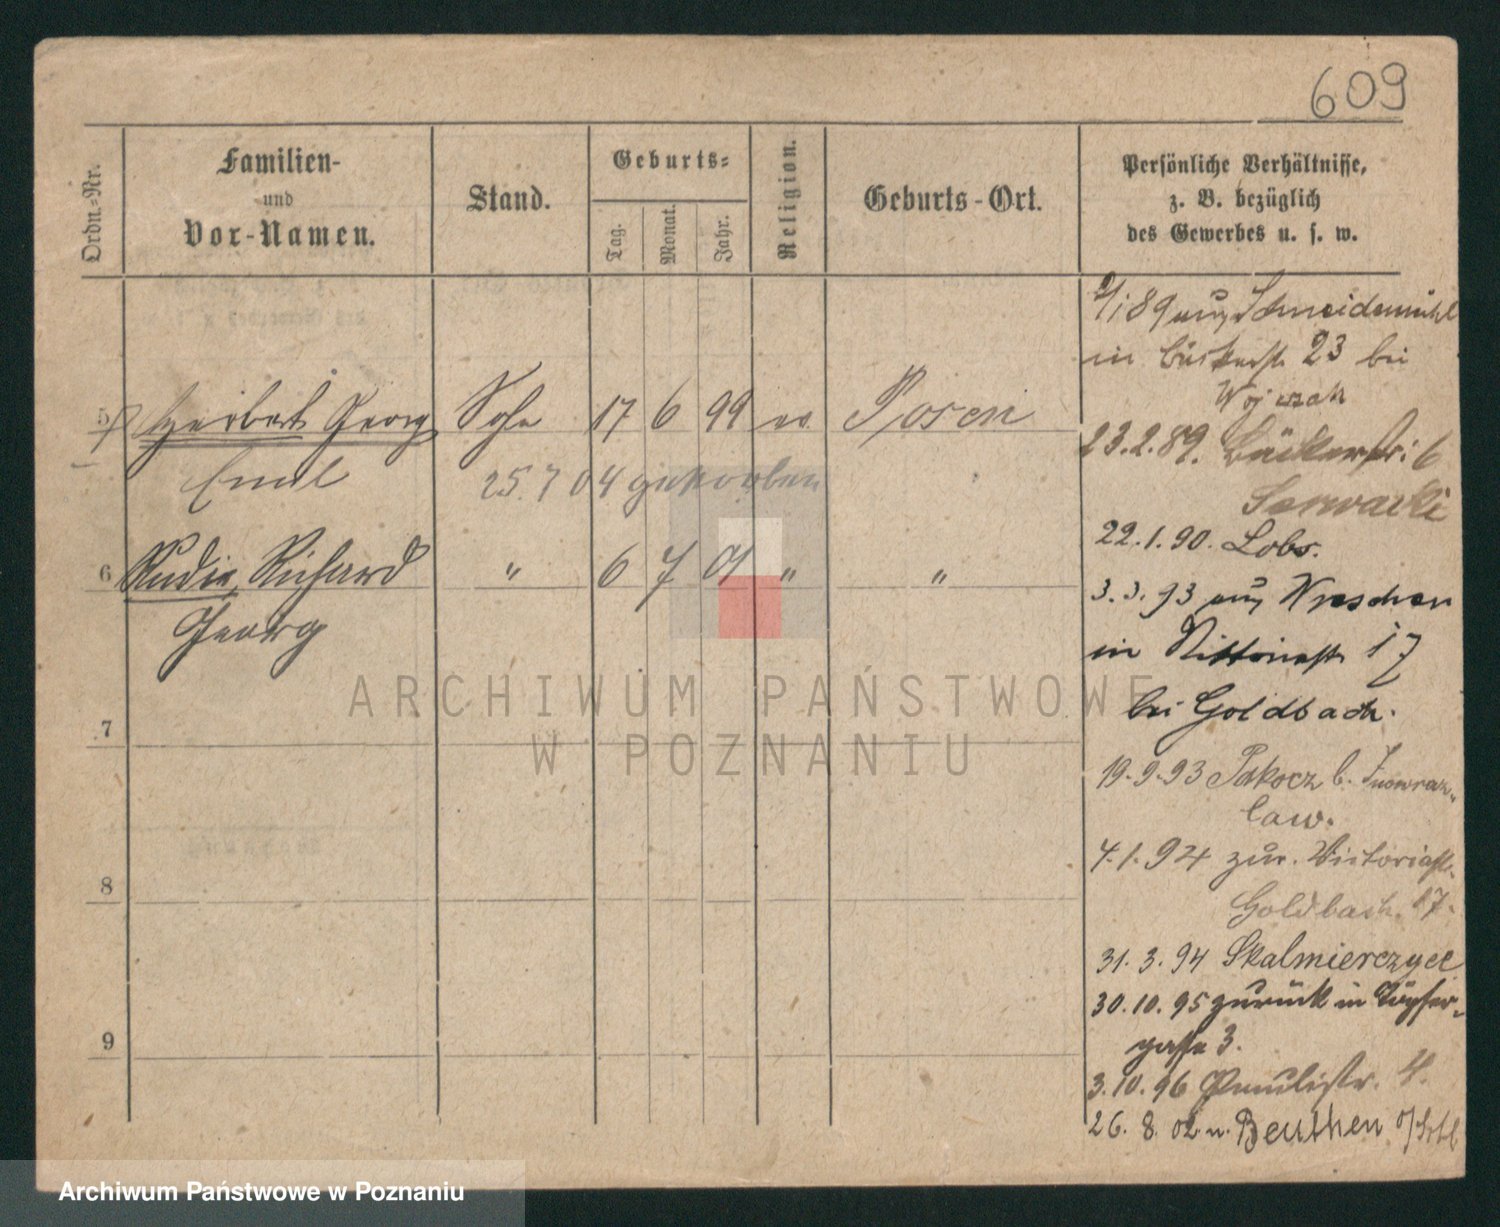 609
Ordn.-Nr.
Familien-
und
Vor-Namen.
Stand.
Geburts-
Tag.
Monat.
Jahr.
Religion.
Geburts-Ort.
Persönliche Verhältnisse,
z. B. bezüglich
des Gewerbes u. s. w.
89 aus Schneidemühl
in Bäckerstr. 23 bei
5 Herbert Georg Sohn 17 6 99 ev. Posen
Emil
25. 7 04 gestorben
23.2.89. Bäckerstr. 6
22.1.90. Lobs.
6 Rudi, Richard " 6 7 01 " "
Georg
3.3.93 aus Wreschen
in 17
bei Goldbach.
7
19.9.93 Pakocz b. Inowraz-
law.
8
4.1.94 zur. Victoriastr.
Goldbach. 17.
31.3.94 Skalmierzyce
30.10.95 zurück in Töpfer-
gasse 3.
9
3.10.96 Paulistr. 4.
26. 8. 02 n. Beuthen
ARCHIWUM PAŃSTWOWE
W POZNANIU
Archiwum Państwowe w Poznaniu